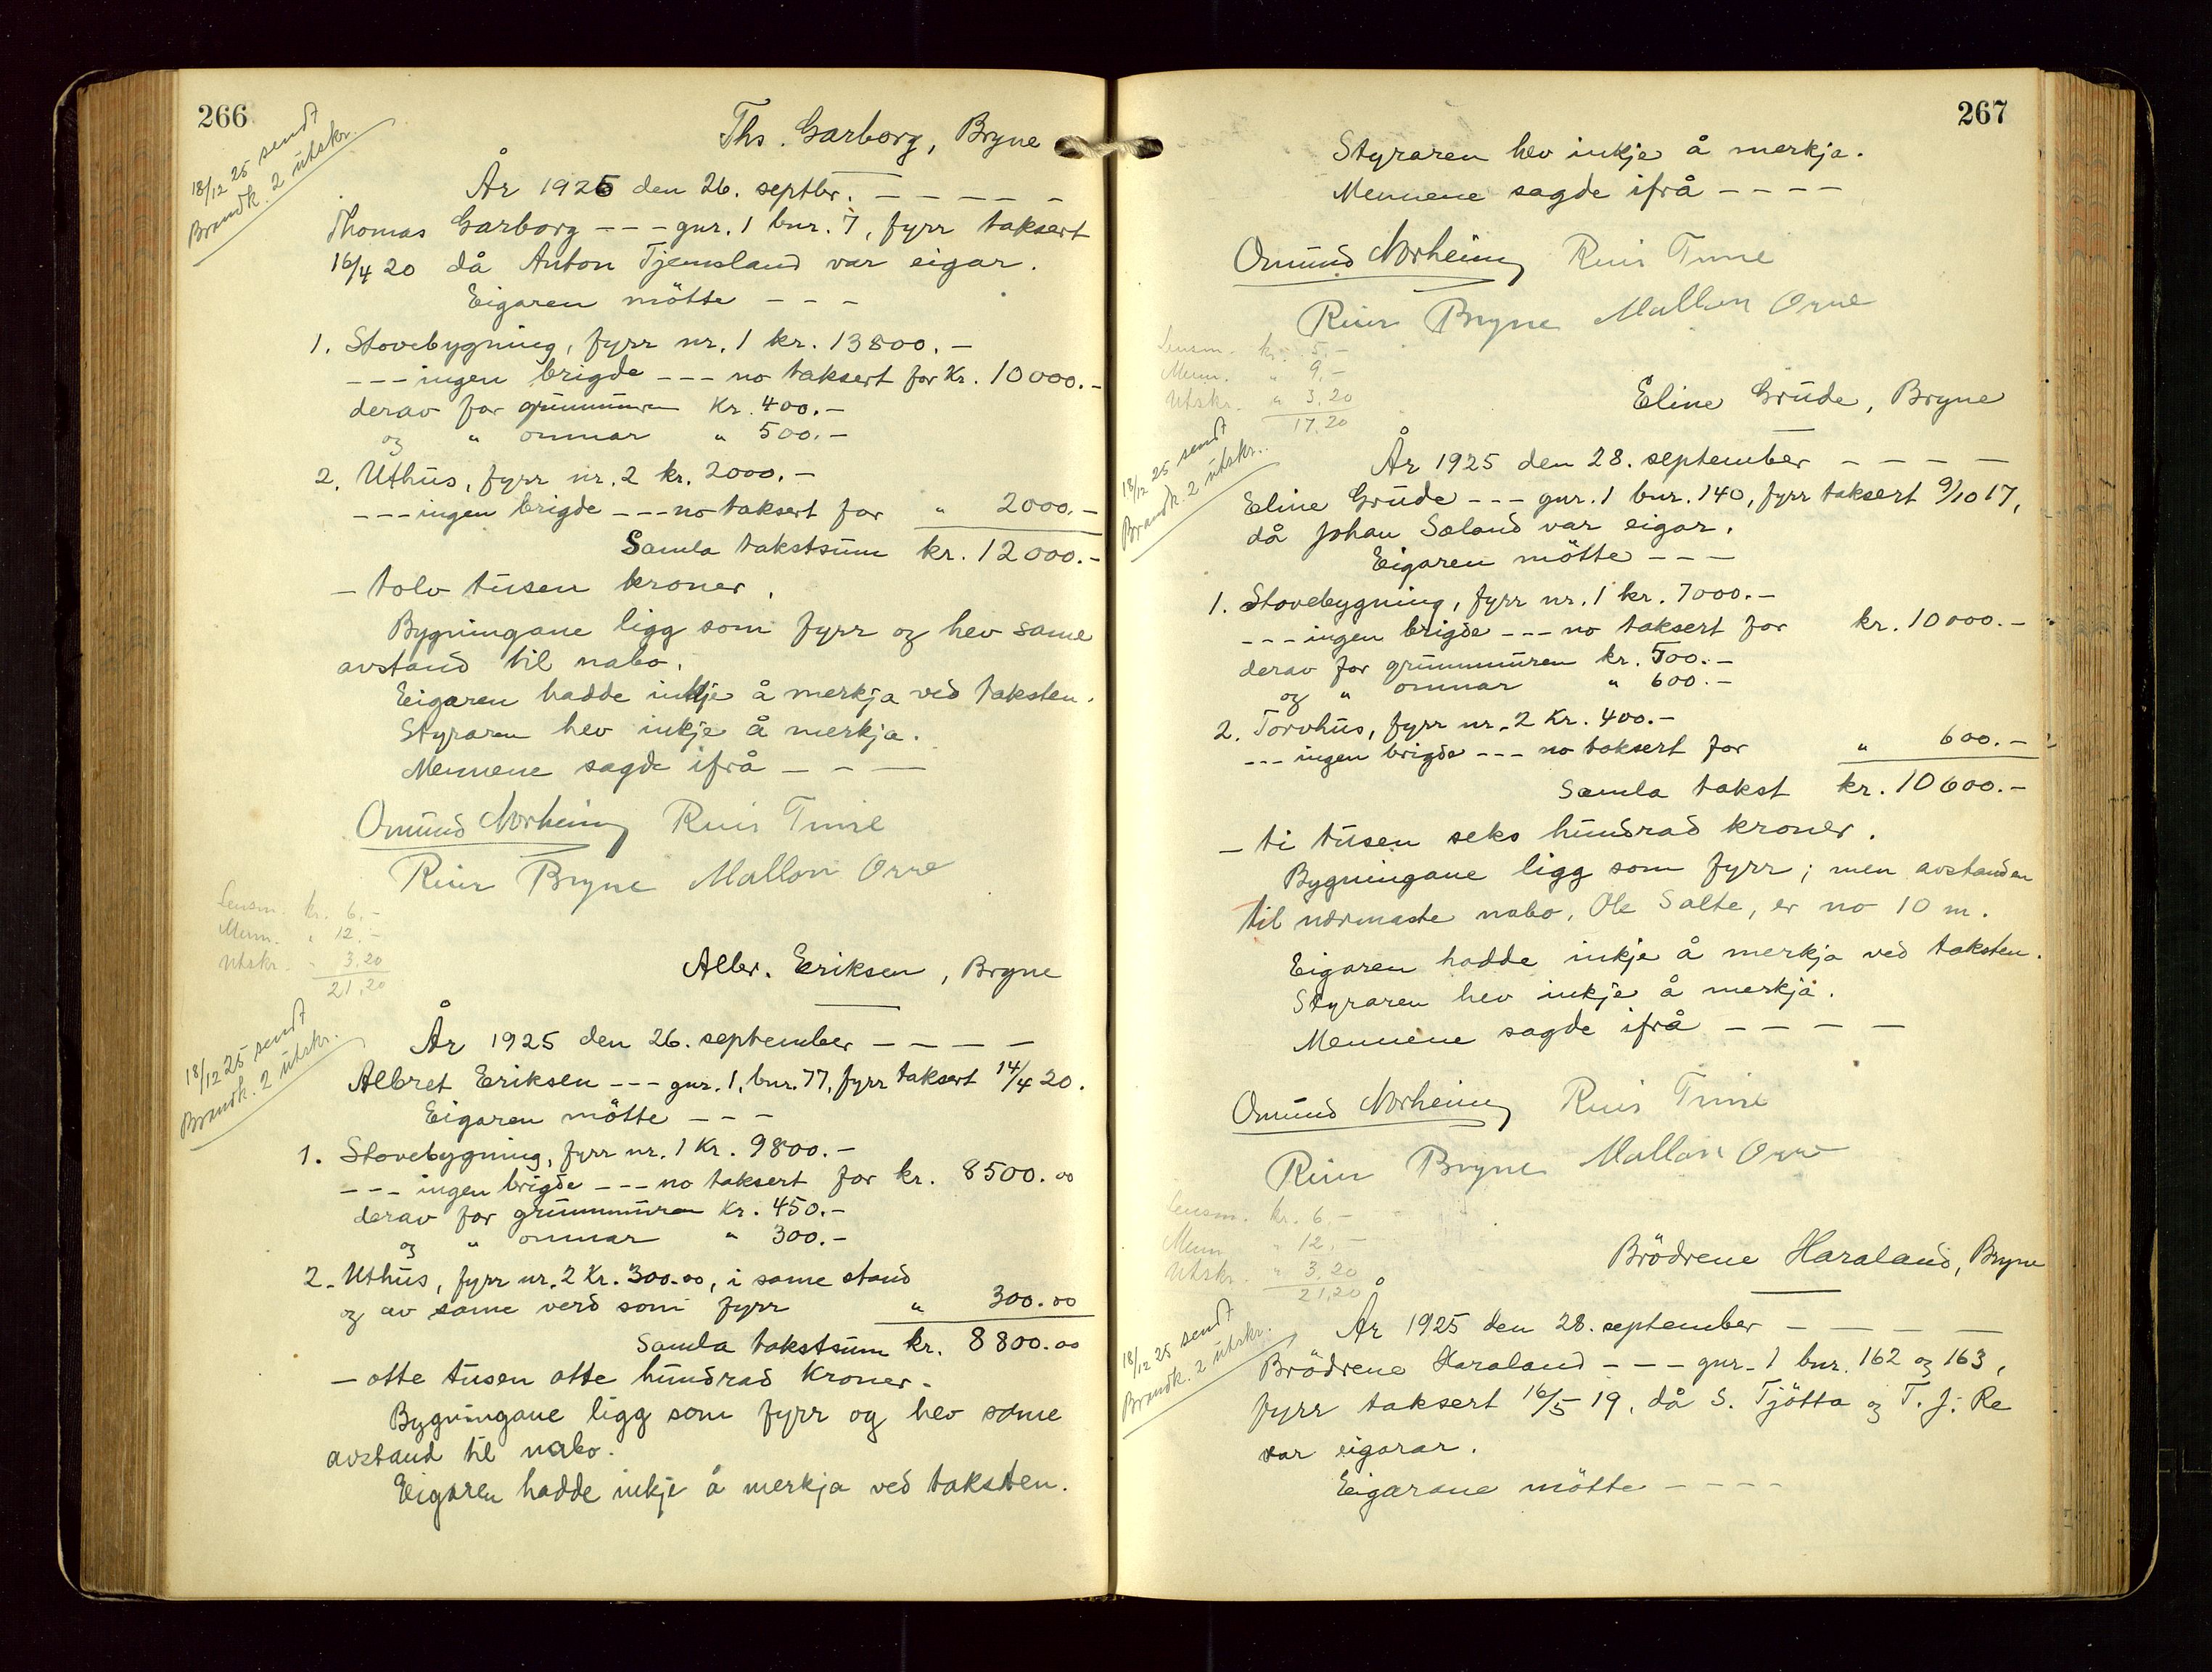 266
18/12 25 sendt
Brandk. 2 utskr.
Ths. Garborg, Bryne
År 1925 den 26. septbr. - - - - -
Thomas Garborg - - - gnr. 1 bnr. 7, fyrr taksert
16/4 20 då Anton Tjemsland var eigar.
Eigaren mötte - - -
1. Stovebygning, fyrr nr. 1 kr. 13800.-
- - - ingen brigde - - - no taksert for Kr. 10000.-
derav for grunnmuren Kr. 400.-
og " omnar " 500.-
2. Uthus, fyrr nr. 2 kr. 2000.-
- - - ingen brigde - - - no taksert for " 2000.-
Samla takstsum kr. 12000.-
- tolv tusen kroner.
Bygningane ligg som fyrr og hev same
avstand til nabo.
Eigaren hadde inkje å merkja ved taksten.
Styraren hev inkje å merkja.
Mennene sagde ifrå - - -
Omund Norheim Reier Time
Reier Bryne Mallon Orre
Lensm. kr. 6.-
Menn. " 12.-
Utskr. " 3.20
21,20
Albr. Eriksen, Bryne
18/12 25 sendt
Brandk. 2 utskr.
År 1925 den 26. september - - - -
Albret Eriksen - - - gnr. 1, bnr. 77, fyrr taksert 14/4 20.
Eigaren mötte - - -
1. Stovebygning, fyrr nr. 1 Kr. 9800.-
- - - ingen brigde - - - no taksert for kr. 8500.00
derav for grunnmuren Kr. 450.-
og " omnar " 300.-
2. Uthus, fyrr nr. 2 Kr. 300.00, i same stand
og av same verd som fyrr " 300.00
Samla takstsum kr. 8800.00
- otte tusen otte hundrad Kroner.
Bygningane ligg som fyrr og hev same
avstand til nabo.
Eigaren hadde inkje å merkja ved taksten.
267
Styraren hev inkje å merkja.
Mennene sagde ifrå - - - -
Omund Norheim Reier Time
Reier Bryne Mallon Orre
Lensm. kr. 5.-
Menn. " 9.-
Utskr. " 3,20
17,20
Eline Grude, Bryne
18/12 25 sendt
Brandk. 2 utskr.
År 1925 den 28. september - - - -
Eline Grude - - - gnr. 1 bnr. 140, fyrr taksert 9/10 17,
då Johan Sæland var eigar.
Eigaren mötte - - -
1. Stovebygning, fyrr nr. 1 kr. 7000.-
- - - ingen brigde - - - no taksert for kr. 10000.-
derav for grunnmuren kr. 500.-
og " omnar " 600.-
2. Torvhus, fyrr nr. 2 Kr. 400.-
- - - ingen brigde - - - no taksert for " 600.-
Samla takst kr. 10600.-
- ti tusen seks hundrad kroner.
Bygningane ligg som fyrr; men avstanden
til nærmaste nabo, Ole Salte, er no 10 m.
Eigaren hadde inkje å merkja ved taksten.
Styraren hev inkje å merkja.
Mennene sagde ifrå - - - -
Omund Norheim Reier Time
Reier Bryne Mallon Orre
Lensm. kr. 6.-
Menn " 12.-
Utskr. " 3,20
21,20
Brödrene Haraland, Bryne
18/12 25 sendt
Brandk. 2 utskr.
År 1925 den 28. september - - - -
Brödrene Haraland - - - gnr. 1 bnr. 162 og 163,
fyrr taksert 16/5 19, då S. Tjötta og T. J. Re
var eigarar.
Eigarane mötte - - - -